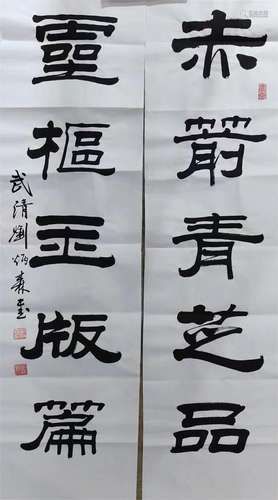 赤箭青芝品
靈樞玉版篇
武清劉炳森書